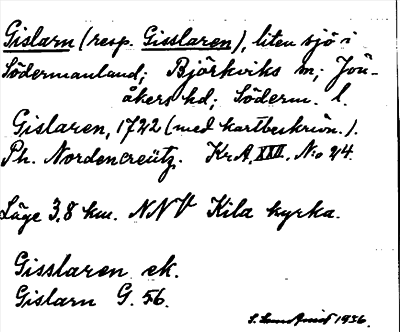 Gislarn (resp. Gisslaren), liten sjö i
Södermanland; Björkviks sn; Jön-
åkers hd; Söderm. l.
Gislaren, 1722 (med kartbeskrivn.).
Ph. Nordencreütz. KrA, XXII, N:o 24.
Läge 3,8 km. NNV Kila kyrka.
Gisslaren ek.
Gislarn G. 56.
1936.